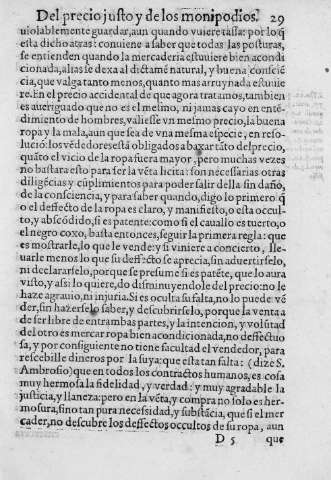 Del precio justo y de los monipodios. 29
uiolablemente guardar, aun quando vuiere tassa: por lo q̃
esta dicho atras: conuiene a saber que todas las posturas,
se entienden quando la mercaderia estuuiere bien acondi
cionada, alias se dexa al dictamẽ natural, y buena consciẽ
cia, que valga tanto menos, quanto mas arruynada estuuie
re. En el precio accidental de que agora tratamos, tambien
es aueriguado que no es el mesmo, ni jamas cayo en ente-
dimiento de hombres, valiesse vn mesmo precio, la buena
ropa y la mala, aun que sea de vna mesma especie, en reso-
luciõ: los vẽdedores estã obligados a baxar tãto del precio,
quãto el vicio de la ropa fuera mayor, pero muchas vezes
no bastara esto para ser la vẽta licita: son necessarias otras
diligẽcias y cũplimientos para poder salir della sin daño,
de la consciencia, y para saber quando, digo lo primero q̃
o el deffecto de la ropa es claro, y manifiesto, o esta occul-
to, y abscõdido, si es patente: como si el cauallo es tuerto, o
el negro coxo, basta entonces, seguir la primera regla: que
es mostrarle, lo que le vende: y si viniere a concierto, lle-
uarle menos lo que su deffecto se aprecia, sin aduertirselo,
ni declararselo, porque se presume si es patẽte, que lo aura
visto, y assi lo quiere, do disminuyendole del precio: no le
haze agrauio, ni injuria. Si es oculta su falta, no lo puede vẽ
der, sin hazerselo saber, y descubrirselo, porque la venta a
de ser libre de entrambas partes, y la intencion, y volũtad
del otro es mercar ropa bien acondicionada, no deffectuo
sa, y por consiguiente no tiene facultad el vendedor, para
rescebille dineros por la suya: que esta tan falta: (dize S.
Ambrosio) que en todos los contractos humanos, es cosa
muy hermosa la fidelidad, y verdad: y muy agradable la
justicia, y llaneza: pero en la vẽta, y compra no solo es her-
mosura, sino tan pura necessidad, y substãcia, que si el mer
cader, no descubre los deffectos occultos de su ropa, aun
D 5 que